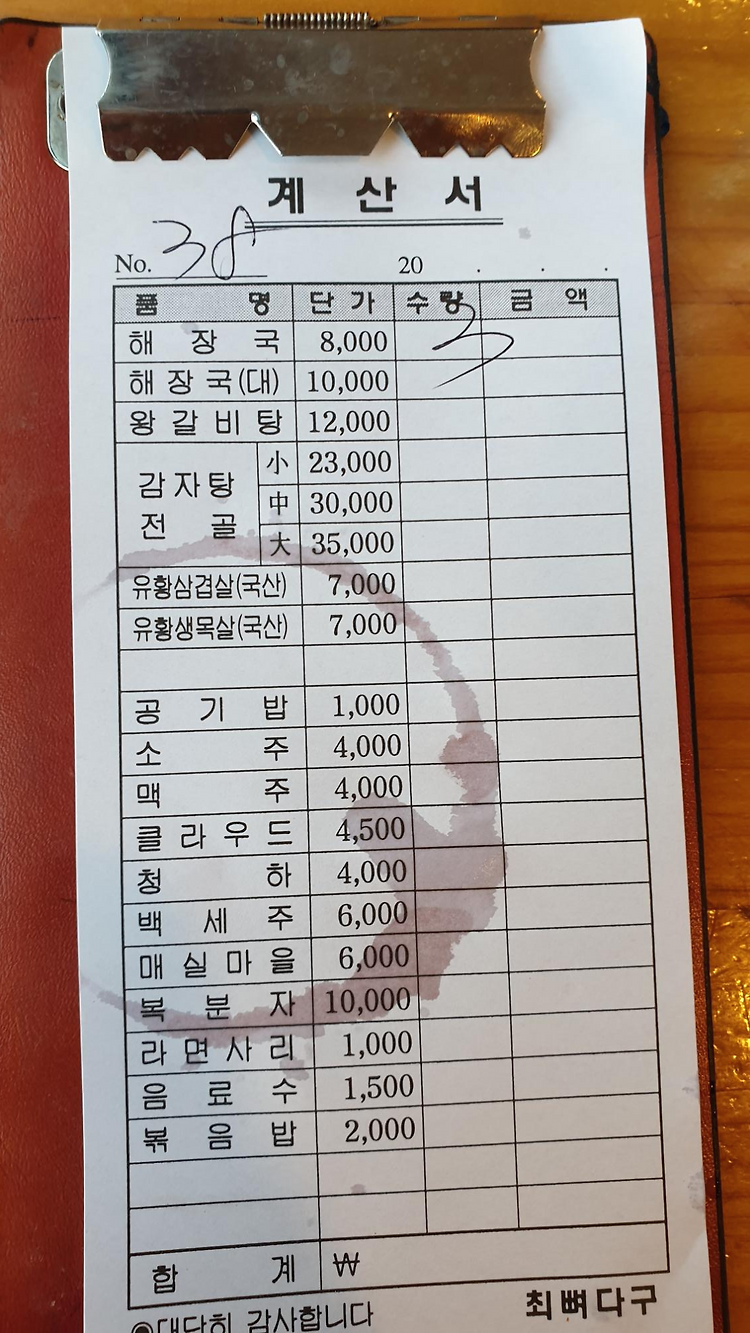 계 산 서
No. 38 20 . . .
품 명 단 가 수 량 금 액
해 장 국 8,000 3
해 장 국 (대) 10,000
왕 갈 비 탕 12,000
감 자 탕 전 골 小 23,000
中 30,000
大 35,000
유황삼겹살(국산) 7,000
유황생목살(국산) 7,000
공 기 밥 1,000
소 주 4,000
맥 주 4,000
클 라 우 드 4,500
청 하 4,000
백 세 주 6,000
매 실 마 을 6,000
복 분 자 10,000
라 면 사 리 1,000
음 료 수 1,500
볶 음 밥 2,000
합 계 ₩
최뼈다구
◉대단히 감사합니다